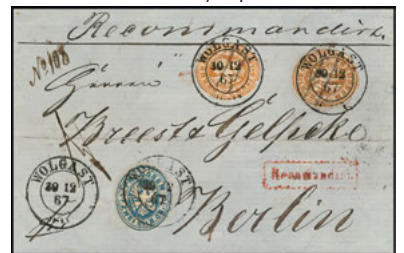 Recommandirt.
No 108
WOLGAST
30 12
67
WOLGAST
30 12
67
Herren
Breest & Gelpcke
WOLGAST
30 12
67
WOLGAST
Recommandirt
Berlin